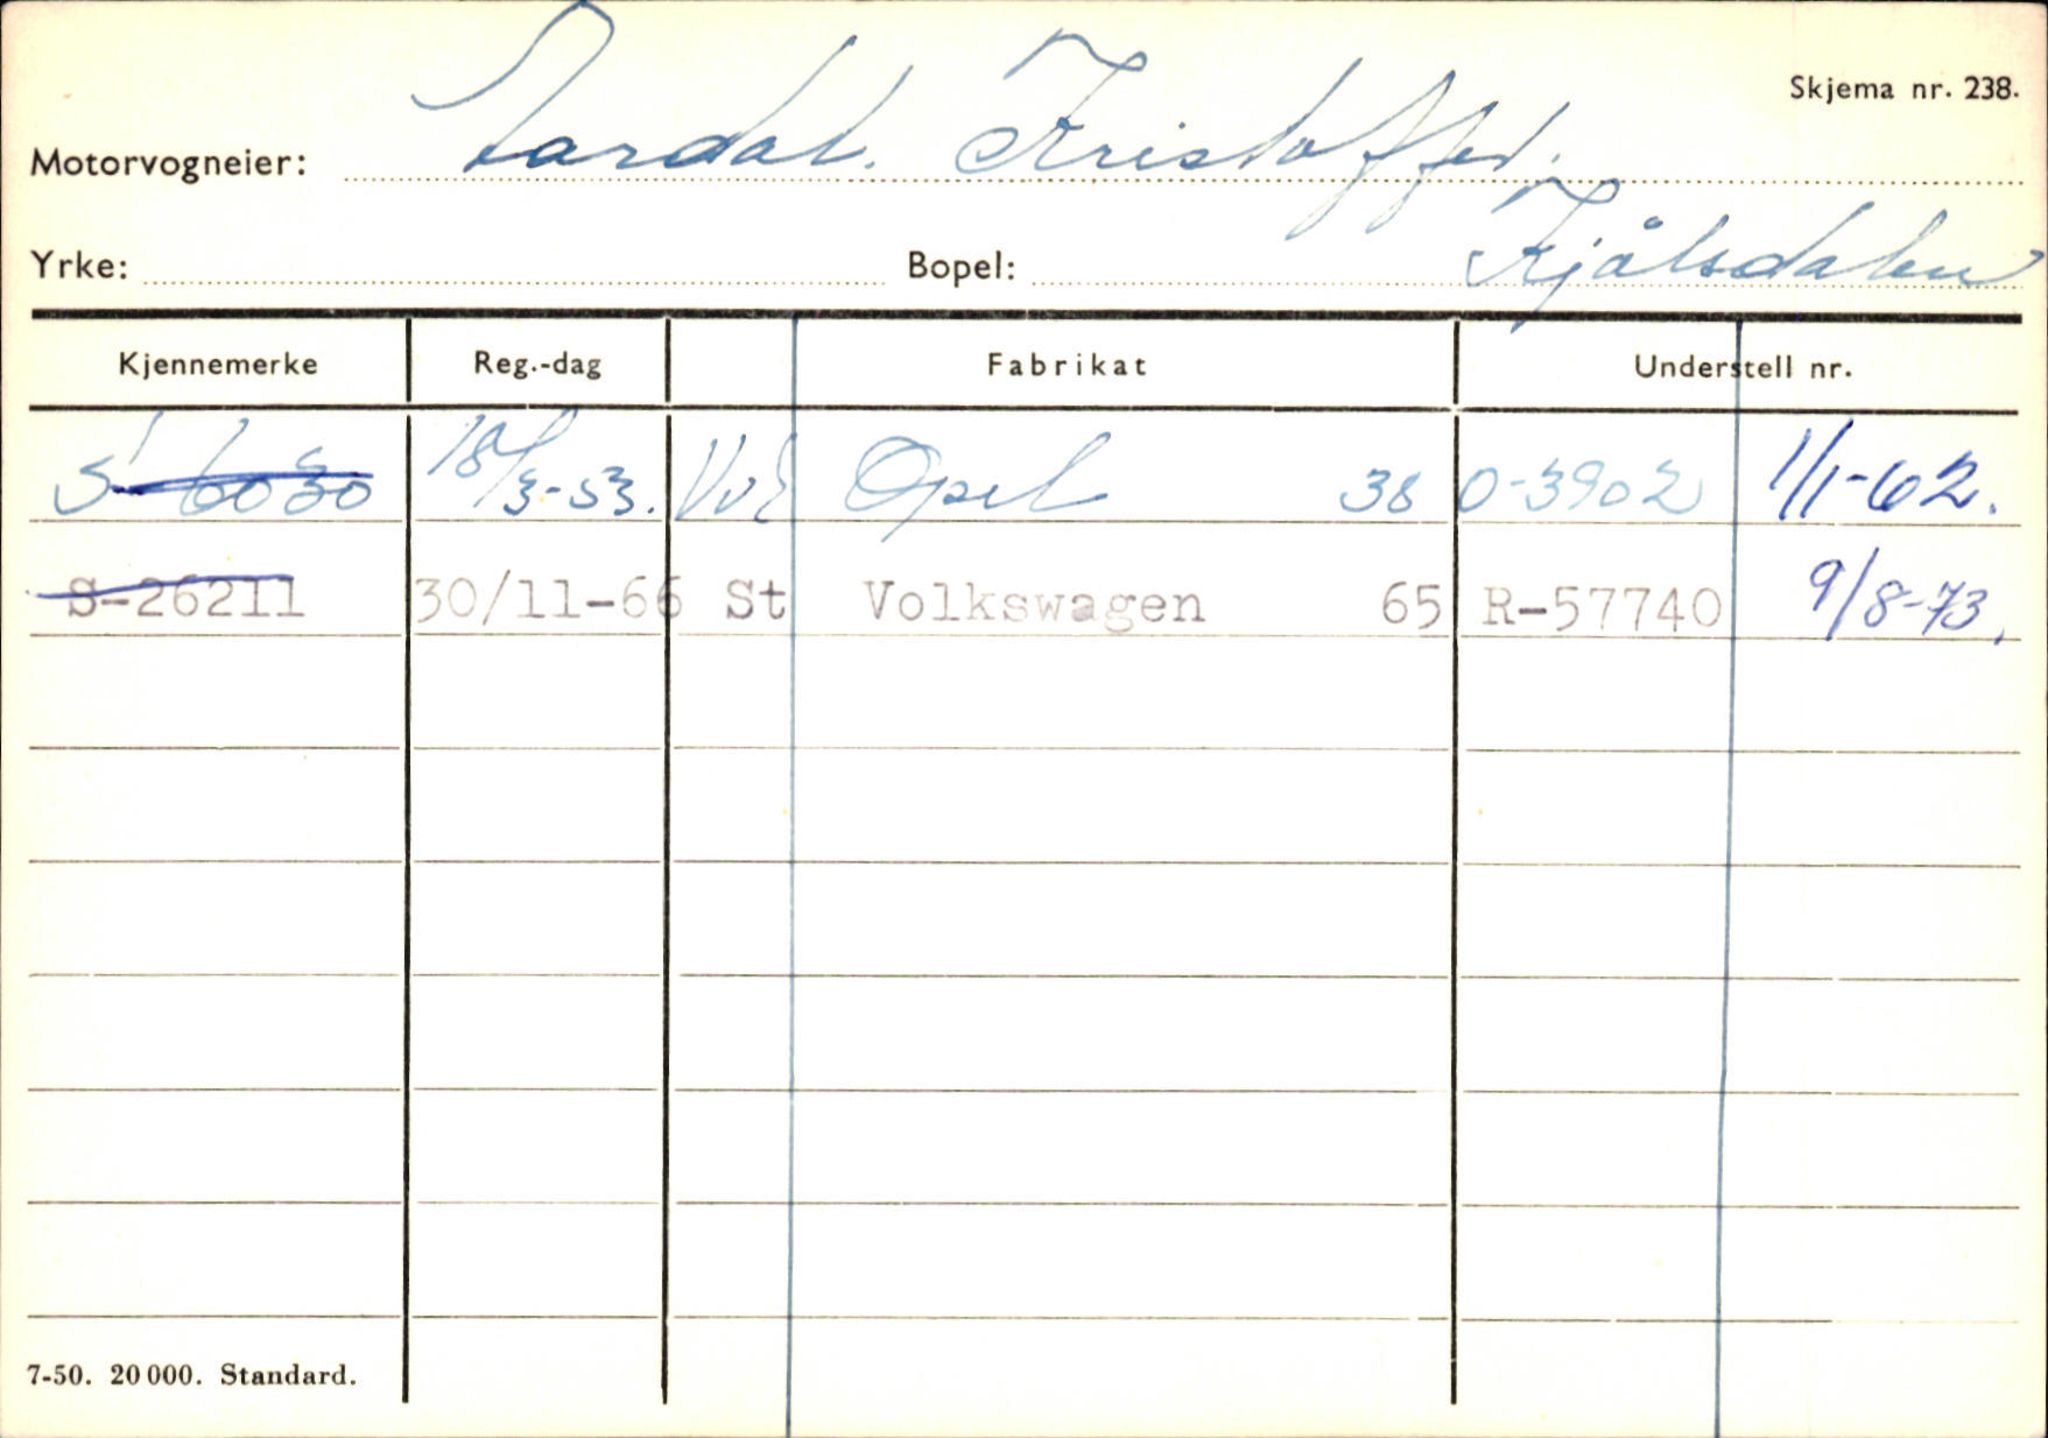 Skjema nr. 238.
Motorvogneier: Lardal. Kristoffer.
Yrke: Bopel: Kjølsdalen
Kjennemerke Reg.-dag Fabrikat Understell nr.
S 6030 18/3-53. Opel 38 0-3902 1/1-62.
S-26211 30/11-66 St Volkswagen 65 R-57740 9/8-73.
7-50. 20 000. Standard.